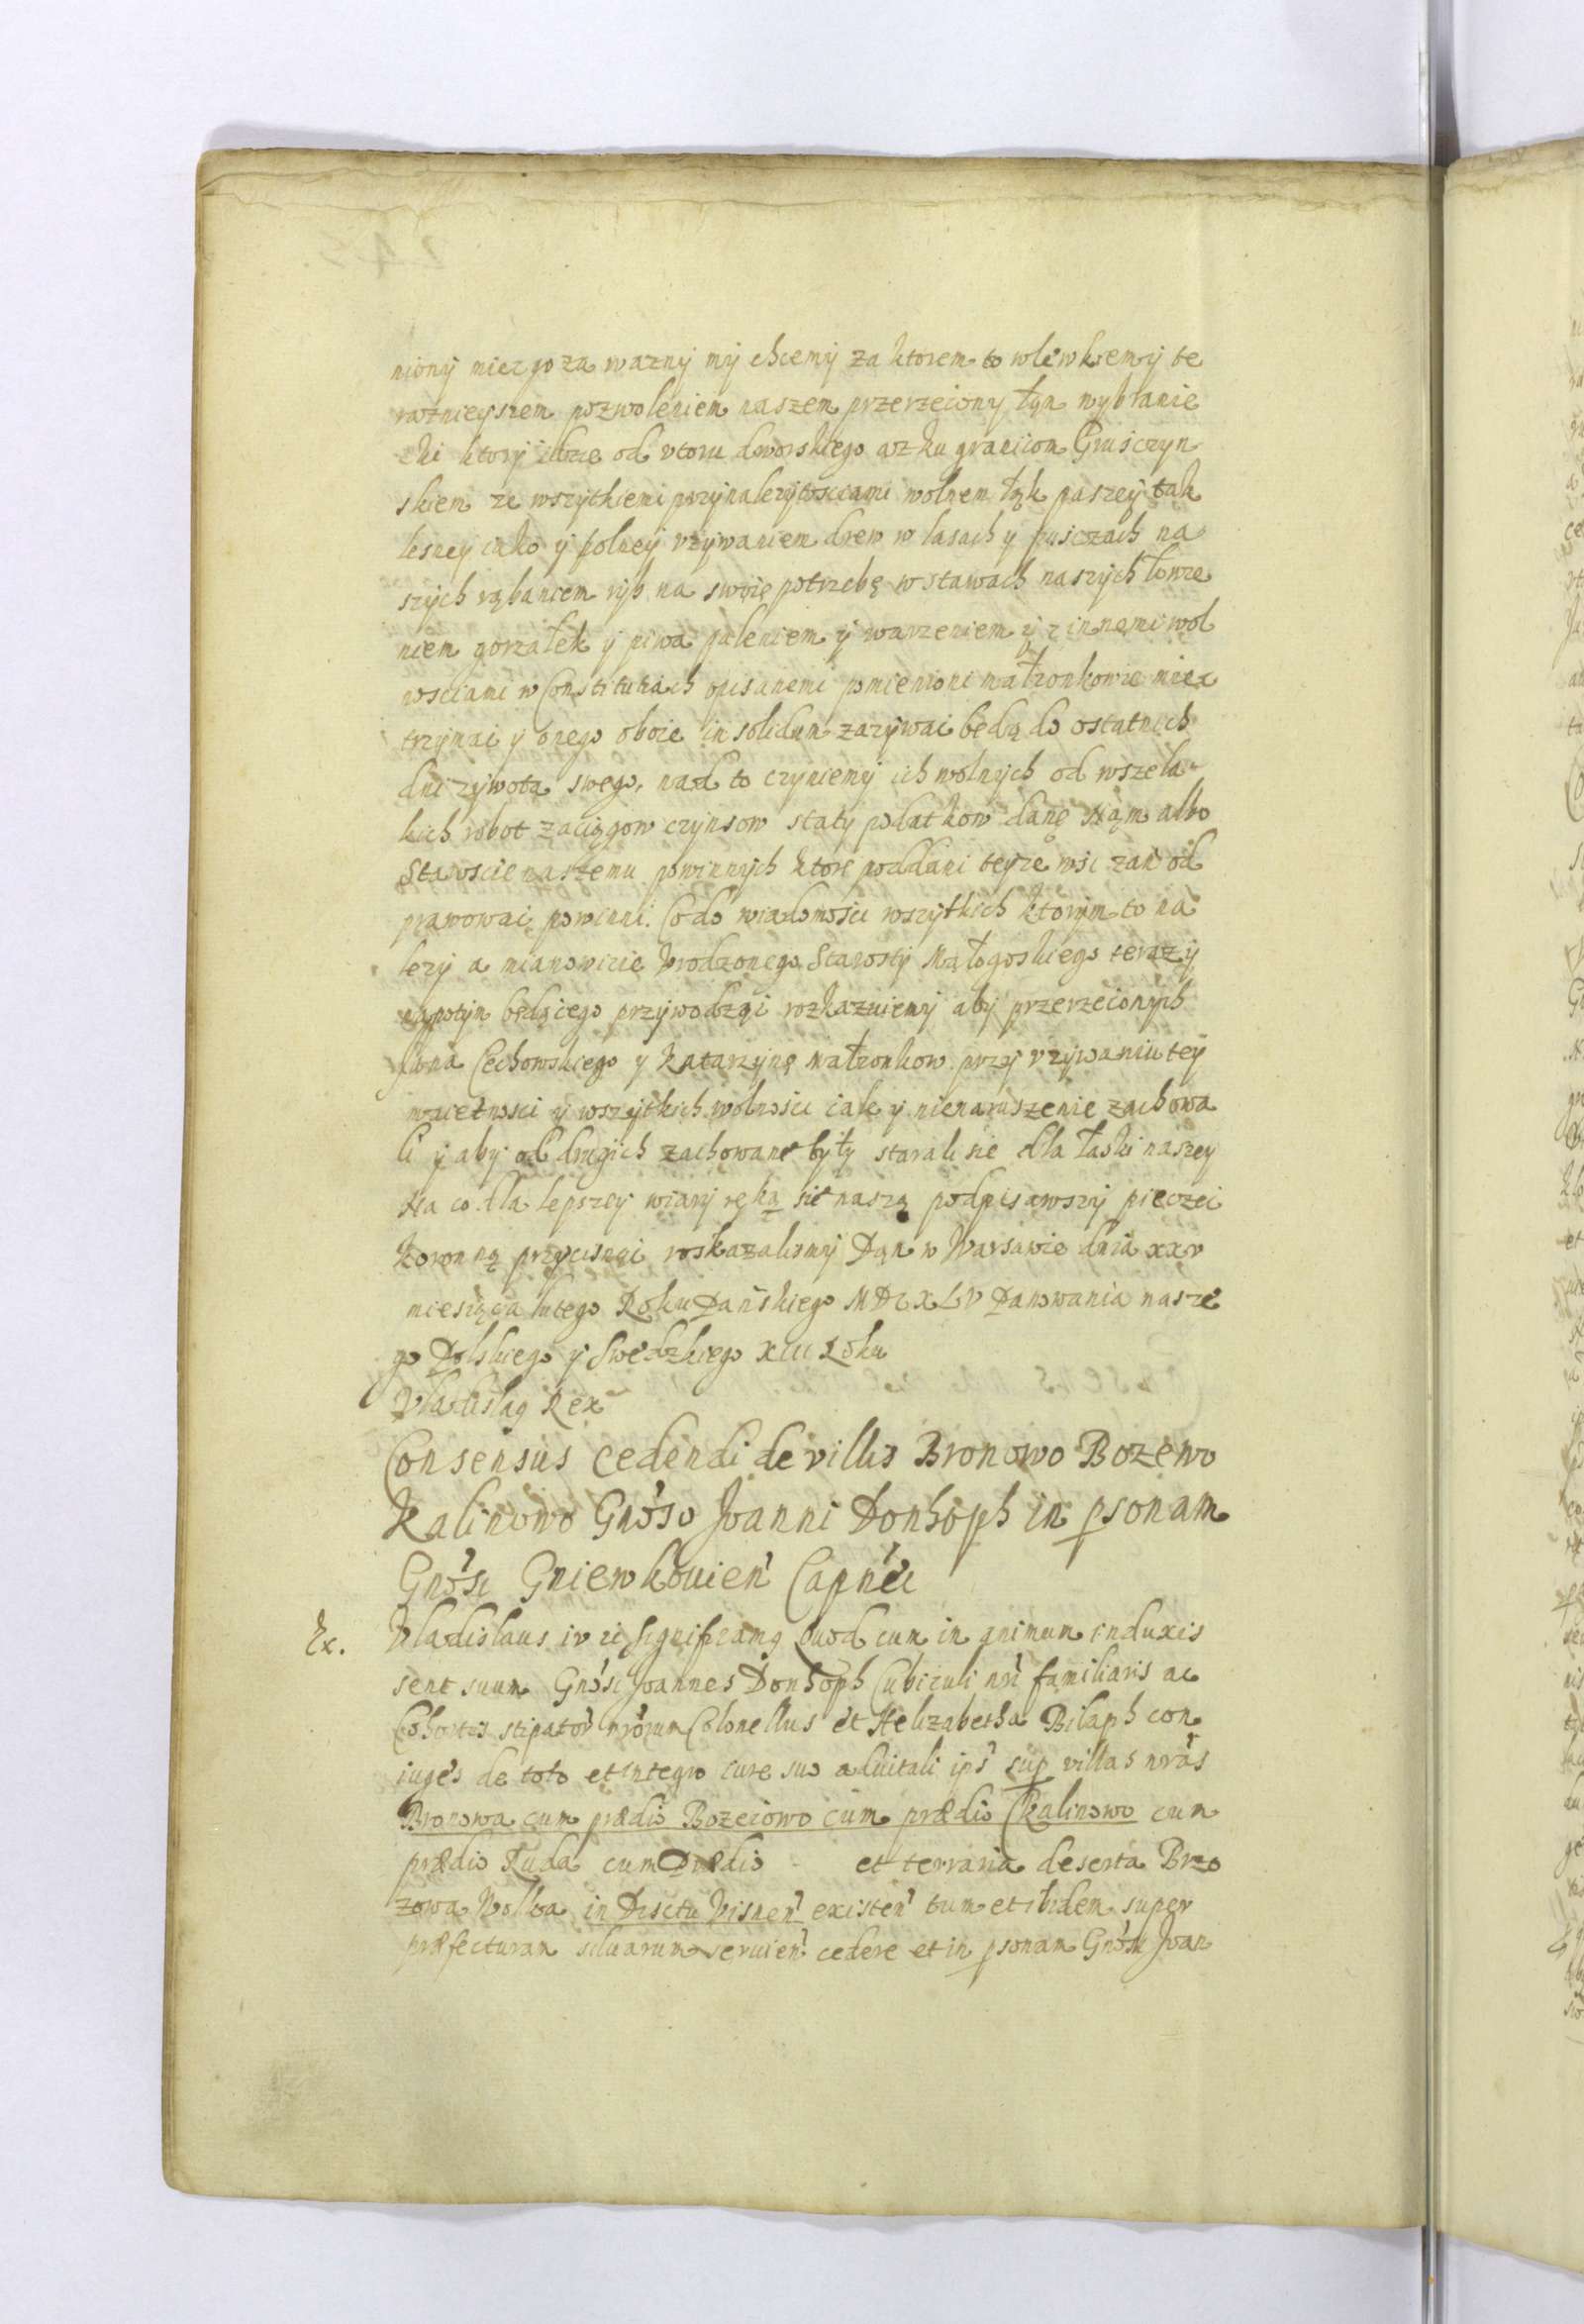 niony miec go za wazny my chcemy za ktorem to wlewkiem y te
raznieyszem pozwoleniem naszem przerzeciony łąn wybranie
cki ktory idzie od vtoru dworskiego asz ku granicom Gruśczyn
skiem ze wszytkiemi przynalezytosciami wolnem łąk paszey tak
lesney iako y polney vzywaniem drew w lasach y pusczach na
szych rąbaniem ryb na swoię potrzebę w stawach naszych łowie
niem gorzałek y piwa paleniem y warzeniem y z innęmi wol
nosciami w Constitutiach opisanemi pomienioni małzonkowie miec
trzymai y onego oboie in solidum zazywai będą do ostatnich
dni zywota swego, nad to czyniemy ich wolnych od wszela
kich robot zaciągow czynsow staty podatkow danę Nąm albo
Staroscie naszemu powinnych ktore poddani teyze wsi zan od
prawowai powinni. Co do wiadomosci wszytkich ktorym to na
lezy a mianowicie Vrodzonego Starosty Małogoskiego terazy
napotym będącego przywodząi rozkazuiemy aby przerzecionych
Jana Cechowskiego y Katarzynę małzonkow przy vzywaniu tey
maietnosci y wszytkich wolnosci cale y nienaruszenie zachowa
li y aby od drugich zachowane były starali sie dla łaski naszey
Na co dla lepszey wiary ręką sie naszą podpisawszy pieczęi
koronną przycisnąi roskazalismy Dąn w Warsawie dnia xxv
miesiąca lutego Roku Pańskiego MDCXLV Panowania nasze
go Polskiego y Swedzkiego XIII Roku
Vladislaq Rex
Consensus cedendi de villis Bronowo Bozewo
Kalinowo Gnoso Joanni Donhoph in psonam
Gnosi Gniewkouien Capnei
Ex. Vladislaus iv ic Significamq Quod cum in animum induxis
sent suum Gnosi Joannes Donhoph Cubiculi nri familiaris ac
Cohortis stipator nrorum Colonellus et Helizabetha Bilaph con
iuges de toto et integro iure suo aduitali ips sup villas nras
Bronowa cum prædio Bozeiowo cum prædio Ckalinowo cum
prædio Ruda cum Prædio et terraria deserta Brzo
zowa Wolka in Disctu Visnen existen tum et ibidem super
præfecturam siluarum seruien cedere et in psonam Gnosi Joan